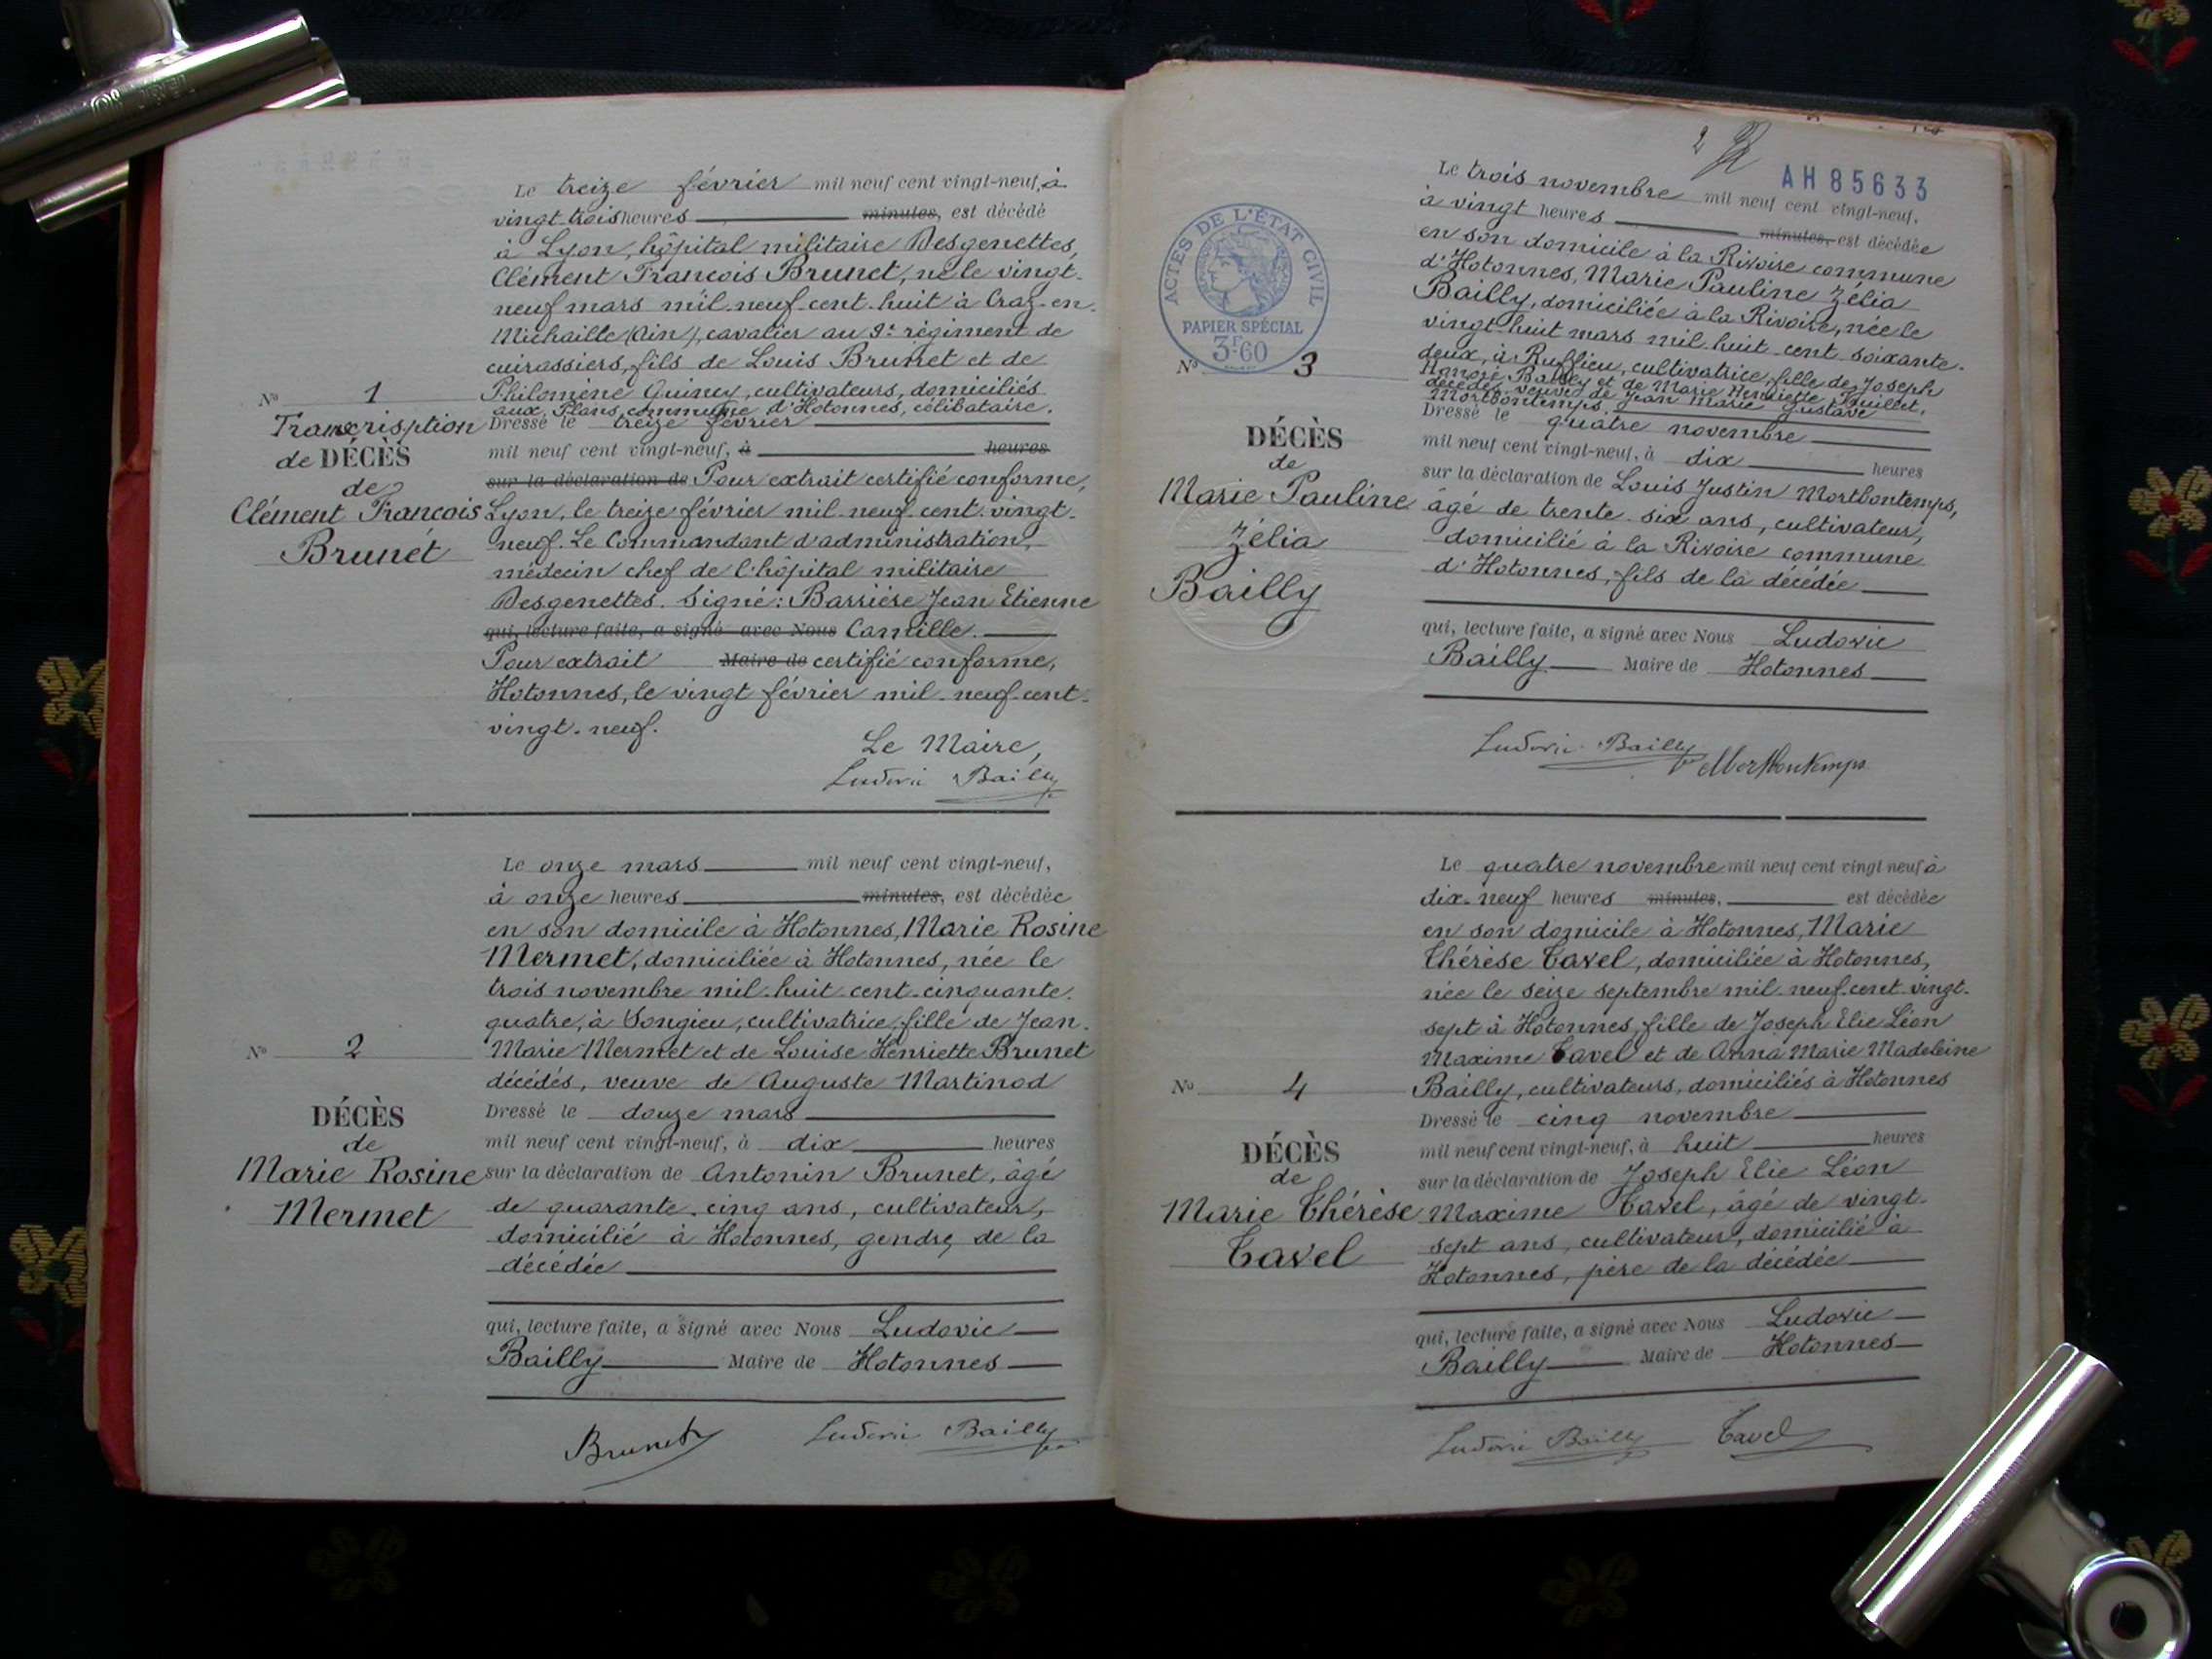 Le treize février mil neuf cent vingt-neuf, à
vingt trois heures minutes, est décédé
à Lyon, hôpital militaire Desgenettes,
Clément François Brunet, né le vingt-
neuf mars mil-neuf-cent-huit à Craz-en-
Michaille (Ain), cavalier au 9e régiment de
cuirassiers, fils de Louis Brunet et de
Philomène Guiney, cultivateurs, domiciliés
aux Plans, commune d'Hotonnes, célibataire.
No 1
Transcrisption
de DÉCÈS
de
Clément François
Brunet
Dressé le treize février
mil neuf cent vingt-neuf, à heures
sur la déclaration de Pour extrait certifié conforme,
Lyon, le treize février mil-neuf-cent-vingt-
neuf. Le Commandant d'administration,
médecin chef de l'hôpital militaire
Desgenettes. Signé: Barrière Jean Etienne
qui, lecture faite, a signé avec Nous Camille.
Pour extrait Maire de certifié conforme,
Hotonnes, le vingt février mil-neuf-cent-
vingt-neuf.
Le Maire,
Ludovic Bailly
Le onze mars mil neuf cent vingt-neuf,
à onze heures minutes, est décédée
en son domicile à Hotonnes, Marie Rosine
Mermet, domiciliée à Hotonnes, née le
trois novembre mil-huit-cent-cinquante-
quatre, à Songieu, cultivatrice, fille de Jean-
Marie Mermet et de Louise Henriette Brunet
décédés, veuve de Auguste Martinod
No 2
DÉCÈS
de
Marie Rosine
Mermet
Dressé le douze mars
mil neuf cent vingt-neuf, à dix heures
sur la déclaration de Antonin Brunet, âgé
de quarante-cinq ans, cultivateur,
domicilié à Hotonnes, gendre de la
décédée
qui, lecture faite, a signé avec Nous Ludovic
Bailly Maire de Hotonnes
Brunet Ludovic Bailly
2
AH 85633
ACTES DE L'ÉTAT CIVIL
PAPIER SPÉCIAL
3F.60
Le trois novembre mil neuf cent vingt-neuf,
à vingt heures minutes, est décédée
en son domicile à la Rivoire commune
d'Hotonnes, Marie Pauline Zélia
Bailly, domiciliée à la Rivoire, née le
vingt-huit mars mil-huit-cent-soixante-
deux, à Ruffieu, cultivatrice, fille de Joseph
Honoré Bailly et de Marie Henriette Juillet,
décédés, veuve de Jean Marie Gustave
Mortbontemps.
No 3
DÉCÈS
de
Marie Pauline
Zélia
Bailly
Dressé le quatre novembre
mil neuf cent vingt-neuf, à dix heures
sur la déclaration de Louis Justin Mortbontemps,
âgé de trente-six ans, cultivateur,
domicilié à la Rivoire commune
d'Hotonnes, fils de la décédée
qui, lecture faite, a signé avec Nous Ludovic
Bailly Maire de Hotonnes
Ludovic Bailly Mortbontemps
Le quatre novembre mil neuf cent vingt neuf à
dix-neuf heures minutes, est décédée
en son domicile à Hotonnes, Marie
Thérèse Tavel, domiciliée à Hotonnes,
née le seize septembre mil-neuf-cent-vingt-
sept à Hotonnes, fille de Joseph Elie Léon
Maxime Tavel et de Anna Marie Madeleine
Bailly, cultivateurs, domiciliés à Hotonnes
No 4
DÉCÈS
de
Marie Thérèse
Tavel
Dressé le cinq novembre
mil neuf cent vingt-neuf, à huit heures
sur la déclaration de Joseph Elie Léon
Maxime Tavel, âgé de vingt-
sept ans, cultivateur, domicilié à
Hotonnes, père de la décédée
qui, lecture faite, a signé avec Nous Ludovic
Bailly Maire de Hotonnes
Ludovic Bailly Tavel